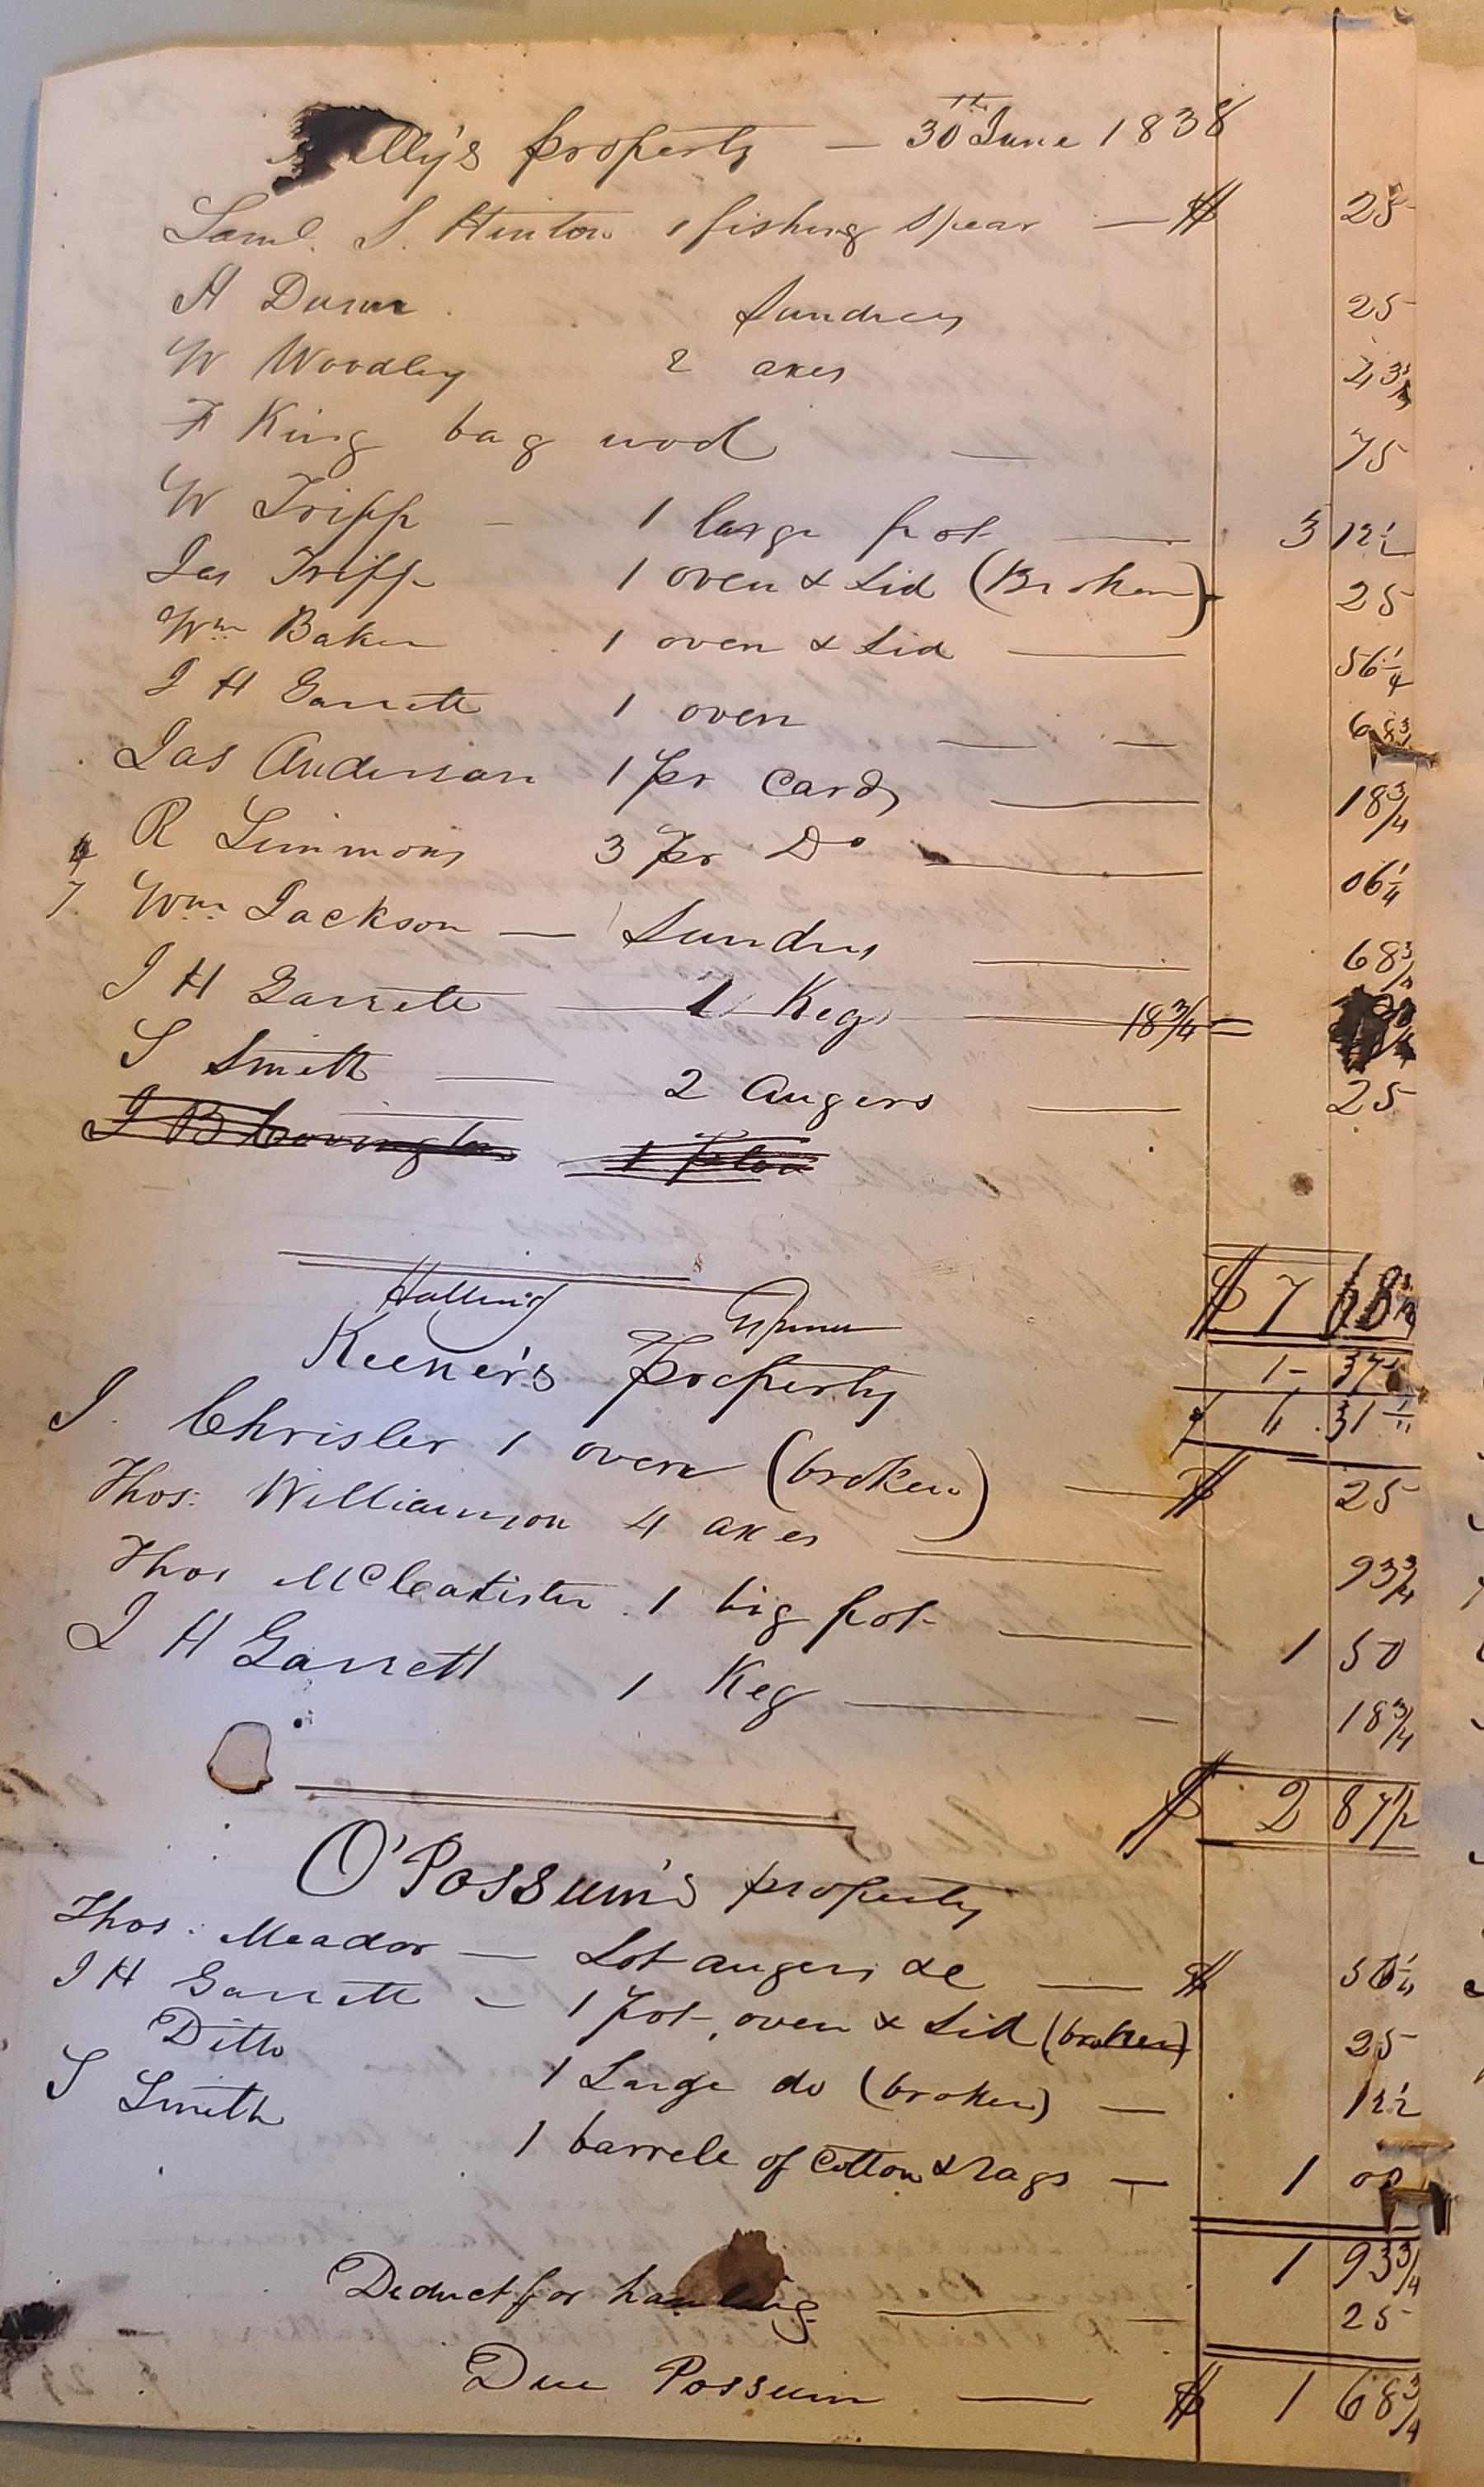 lly's property — 30th June 1838
Saml. S. Hinton 1 fishing spear — $ 25
H Dunn Sundries 25
W Woodley 2 axes 43¾
F King bag wool — 75
W Tripp - 1 large pot — 3 12½
Jas Tripp 1 oven & Lid (Broken) 25
Wm Baker 1 oven & Lid — 56¼
J H Garrett 1 oven — — 68¾
Jas Anderson 1 pr Cards — 18¾
R Simmons 3 pr Do — 06¼
Wm Jackson — Sundries — 68¾
J H Garrett — Kegs — 18¾
S Smith — 2 Augers — 25
J B Covington 1 Plow
$ 7 68¾
Hauling
1 - 37½
Keener's Property
31
J. Chrisler 1 oven (broken) — $ 25
Thos: Williamson 4 axes — 93¾
Thos McCoatister 1 big pot — 1 50
J H Garrett 1 Keg — 18¾
$ 2 87½
O'Possum's property
Thos: Meador — Lot augers &c — $ 56¼
J H Garrett - 1 pot, oven & Lid (broken) 25
Ditto 1 Large do (broken) — 12½
S Smith
1 barrele of Cotton & rags — 1 00
1 93¾
Deduct for hauling — 25
Due Possum — $ 1 68¾